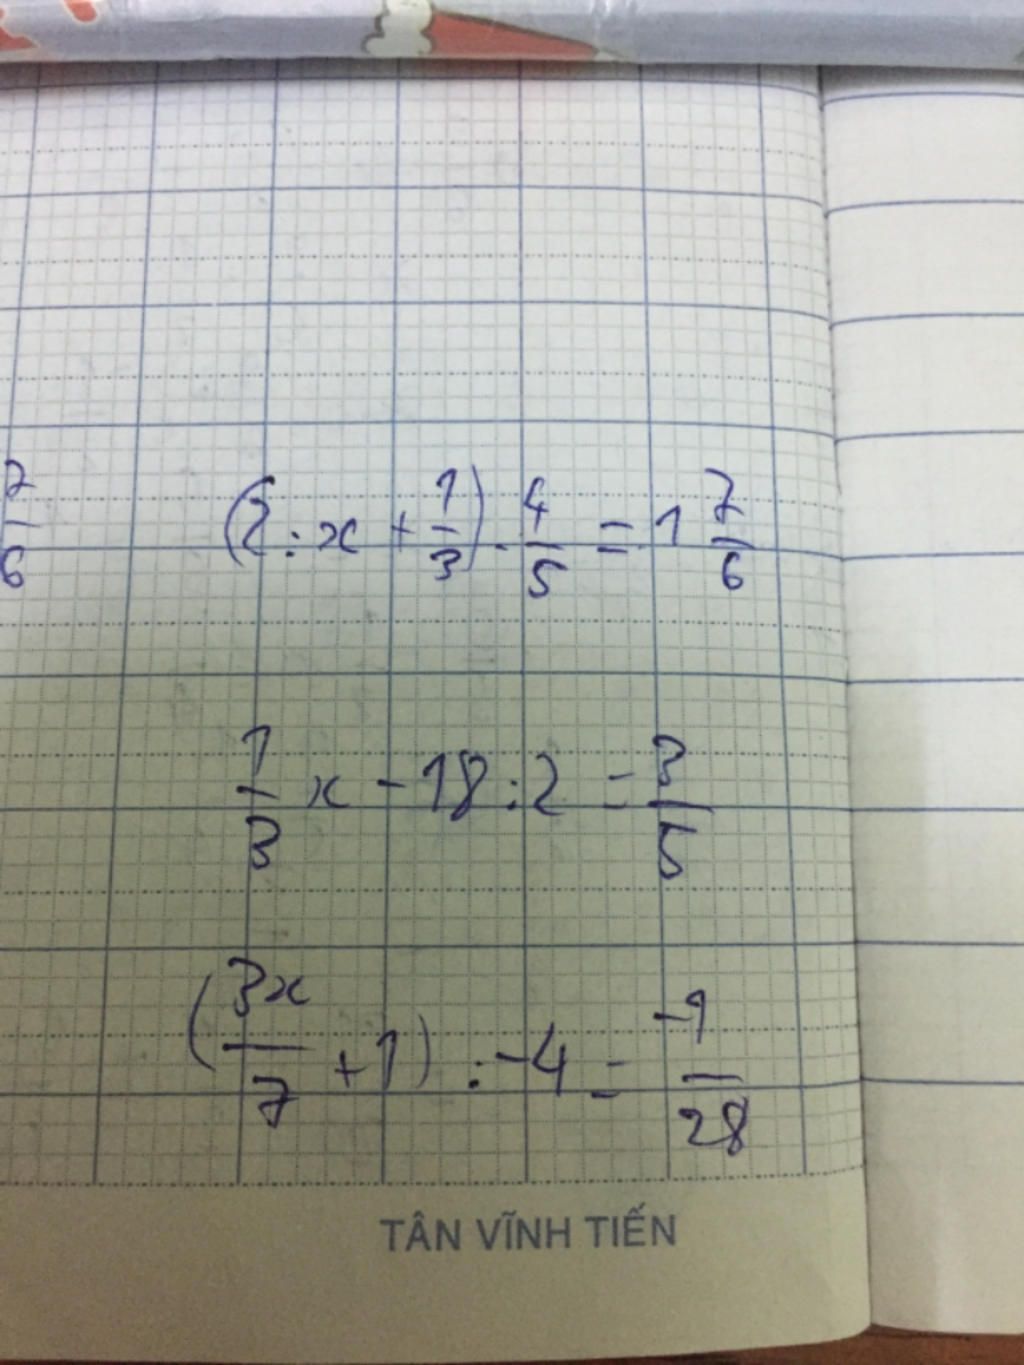 7/6
(2 : x + 1/3) . 4/5 = 1 7/6
1/3 x - 18 : 2 = 3/5
(3x/7 + 1) : -4 = -1/28
TÂN VĨNH TIẾN